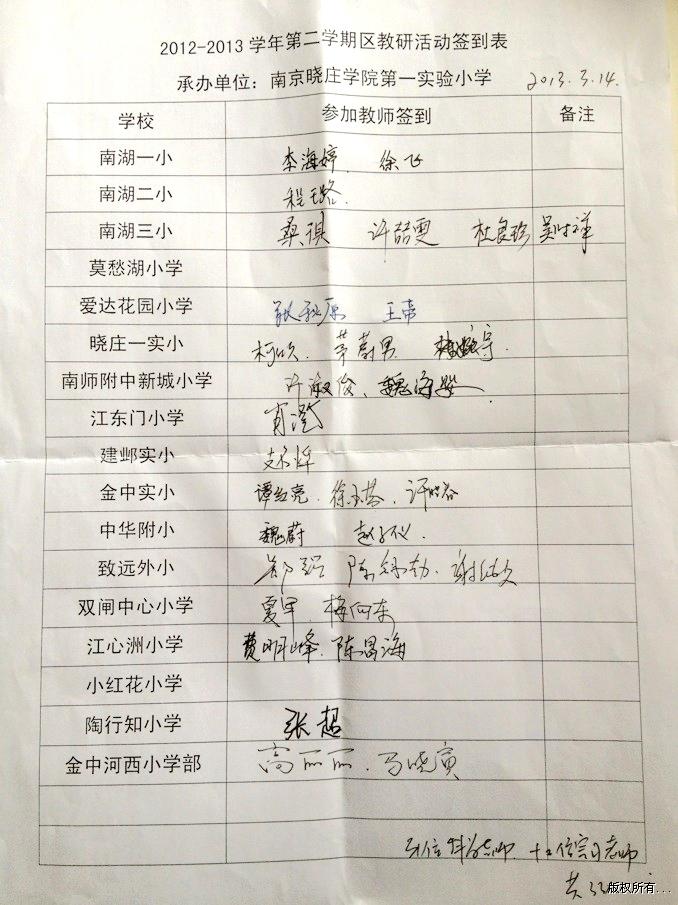 2012-2013学年第二学期区教研活动签到表
承办单位：南京晓庄学院第一实验小学 2013.3.14.
学校 参加教师签到 备注
南湖一小 李海婷 徐飞
南湖二小 程璐
南湖三小 桑祺 许喆雯 杜良珍 吴时祥
莫愁湖小学
爱达花园小学 张秋原 王帝
晓庄一实小 柯欣 黄蔚男
南师附中新城小学 许淑俊、魏海燕
江东门小学 肖滢
建邺实小
金中实小 谭红亮 徐玉芬
中华附小 魏蔚 赵子仪
致远外小 郑强 陈绵勃
双闸中心小学 夏军 梅向东
江心洲小学 费明峰 陈昌海
小红花小学
陶行知小学 张超
金中河西小学部 高丽丽 马晓寅
老师
版权所有...